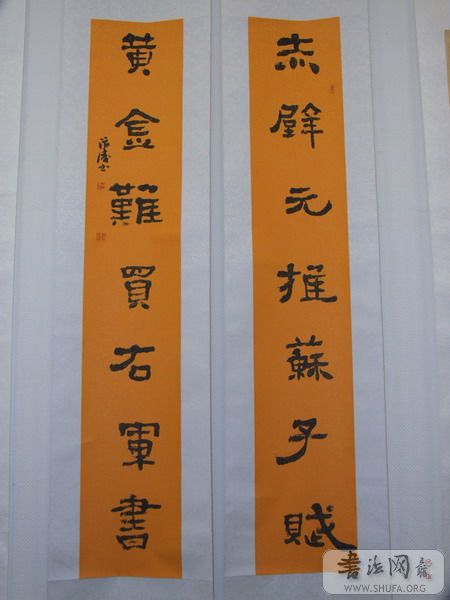 赤壁元推蘇子賦
黄金難買右軍書
書法网
WWW.SHUFA.ORG